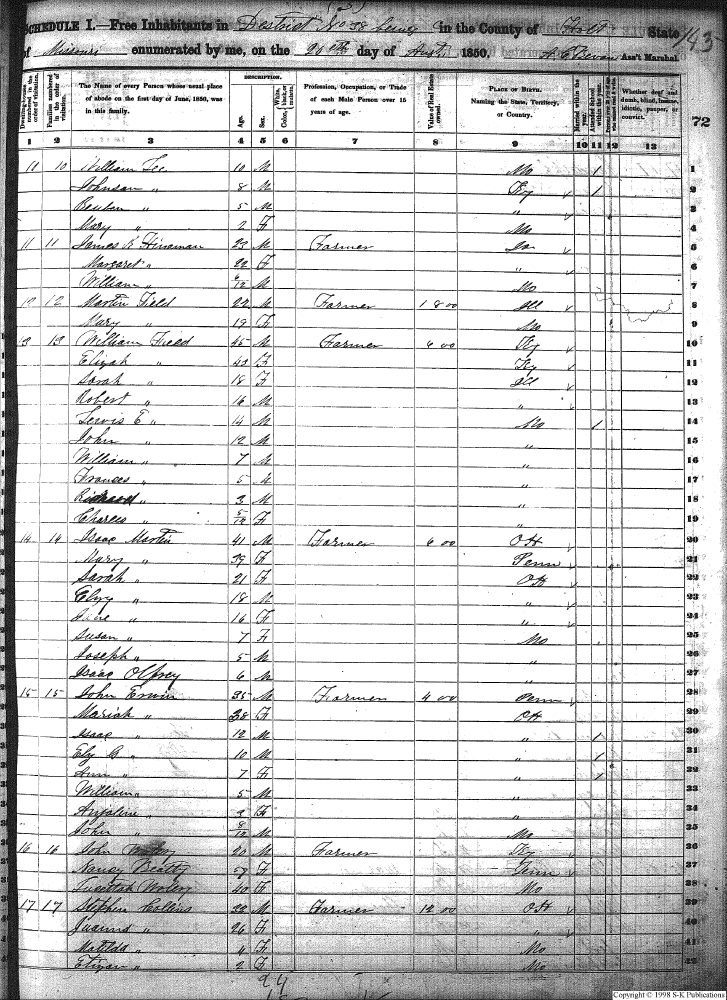 SCHEDULE I.—Free Inhabitants in District No 38 in the County of Holt State
of Missouri enumerated by me, on the day of Augt 1850. Ass't Marshal.
Dwelling-houses numbered in the order of visitation.
Families numbered in the order of visitation.
The Name of every Person whose usual place of abode on the first day of June, 1850, was in this family.
DESCRIPTION.
Age.
Sex.
Color, White, black, or mulatto.
Profession, Occupation, or Trade of each Male Person over 15 years of age.
Value of Real Estate owned.
PLACE OF BIRTH. Naming the State, Territory, or Country.
Married within the year.
Attended School within the year.
Whether deaf and dumb, blind, insane, idiotic, pauper, or convict.
72
1 2 3 4 5 6 7 8 9 10 11 12 13
11 10 William Lee 10 M Mo 1 1
Johnson " 8 M Ky 1 2
Reuben " 5 M " 3
Mary " 2 F Mo 4
11 11 James K 23 M Farmer 5
Margaret " 22 F " 6
William " M Mo 7
12 12 Martin Field 22 M Farmer 1800 Ill 8
Mary " 19 F Mo 9
13 13 William Field 45 M Farmer 600 Ky 10
Elizah " 40 F Ky 11
Sarah " 18 F Ill 12
Robert " 16 M " 13
Lewis E " 14 M Mo 1 14
John " 12 M " 15
William " 7 M " 16
Frances " 5 M " 17
Richard " 3 M " 18
Charles " F " 19
14 14 Isaac Martin 41 M Farmer 600 OH 20
Mary " 39 F Penn 21
Sarah " 21 F OH 22
Elzy " 18 M " 23
Jane " 16 F " 24
Susan " 7 F Mo 25
Joseph " 5 M " 26
Isaac Olfrey 6 M " 27
15 15 John Erwin 35 M Farmer 400 Penn 28
Mariah " 38 F OH 29
Isaac " 12 M " 1 30
Ely B " 10 M " 1 31
Ann " 7 F " 1 32
William " 5 M " 33
" 3 F " 34
John " M Mo 35
16 16 John 20 M Farmer Ky 36
Nancy Beatty F Tenn 37
40 F Mo 38
17 17 Stephen Collins 32 M Farmer 1200 OH 39
" 26 F " 40
Matilda " 4 F Mo 41
" 2 F Mo 42
Copyright © 1998 S-K Publications